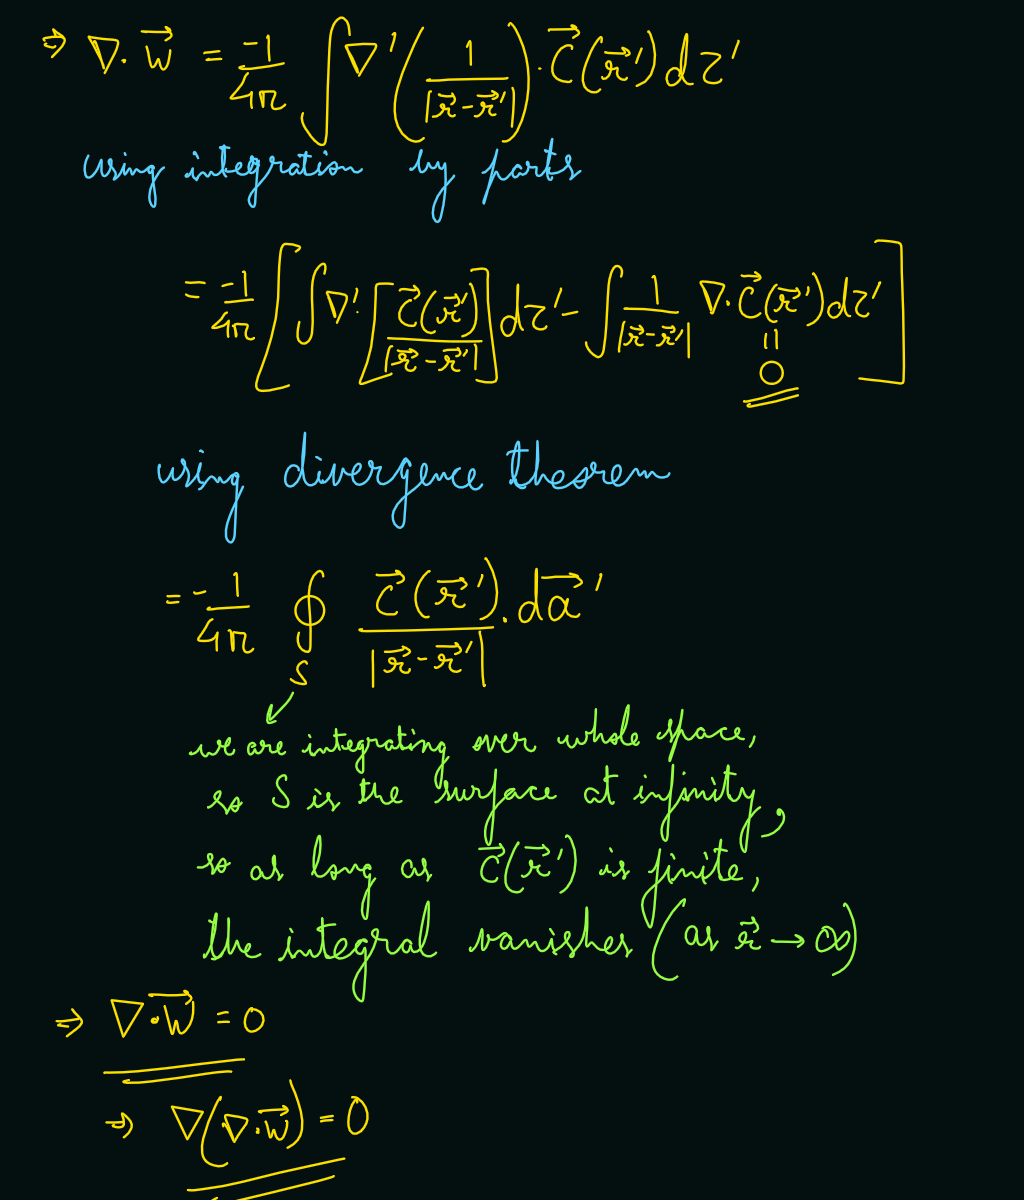 ⇒ ∇·w⃗ = -1/4π ∫ ∇'(1/|r⃗-r⃗'|)·C⃗(r⃗')dτ'
using integration by parts
= -1/4π [∫∇'·[C⃗(r⃗')/|r⃗-r⃗'|]dτ' - ∫1/|r⃗-r⃗'| ∇·C⃗(r⃗')dτ']
=
0
using divergence theorem
= -1/4π ∮ C⃗(r⃗')/|r⃗-r⃗'| · da⃗'
S
we are integrating over whole space,
so S is the surface at infinity,
so as long as C⃗(r⃗') is finite,
the integral vanishes (as r⃗ → ∞)
⇒ ∇·W⃗ = 0
⇒ ∇(∇·W⃗) = 0